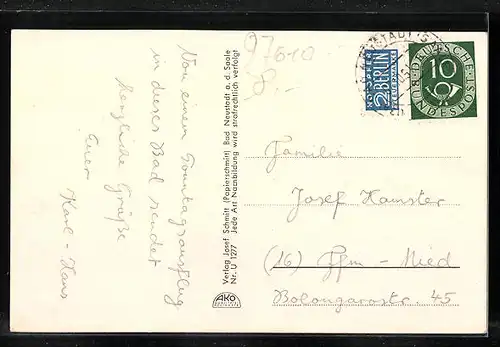 Von einem Sonntagsausflug
in dieses Bad sendet
herzliche Grüße
Euer
Karl-Hans
Verlag Josef Schmitt (Papierschmitt) Bad Neustadt a. d. Saale
Nr. U 1277 Jede Art Nachbildung wird strafrechtlich verfolgt
AKO
97610
8.-
2 BERLIN
NEUSTADT (S
DEUTSCHE
10
BUNDESPOST
Familie
Josef Hamster
(16) Ffm - Nied
Bolongarostr. 45